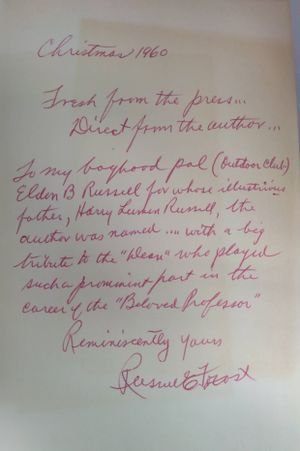 Christmas 1960
Fresh from the press...
Direct from the author...
To my boyhood pal (Outdoor Club)
Eldon B Russell for whose illustrious
father, Harry Luman Russell, the
author was named.... with a big
tribute to the "Dean" who played
such a prominint part in the
career of the "Beloved Professor"
Reminiscently yours
Russell E Frost